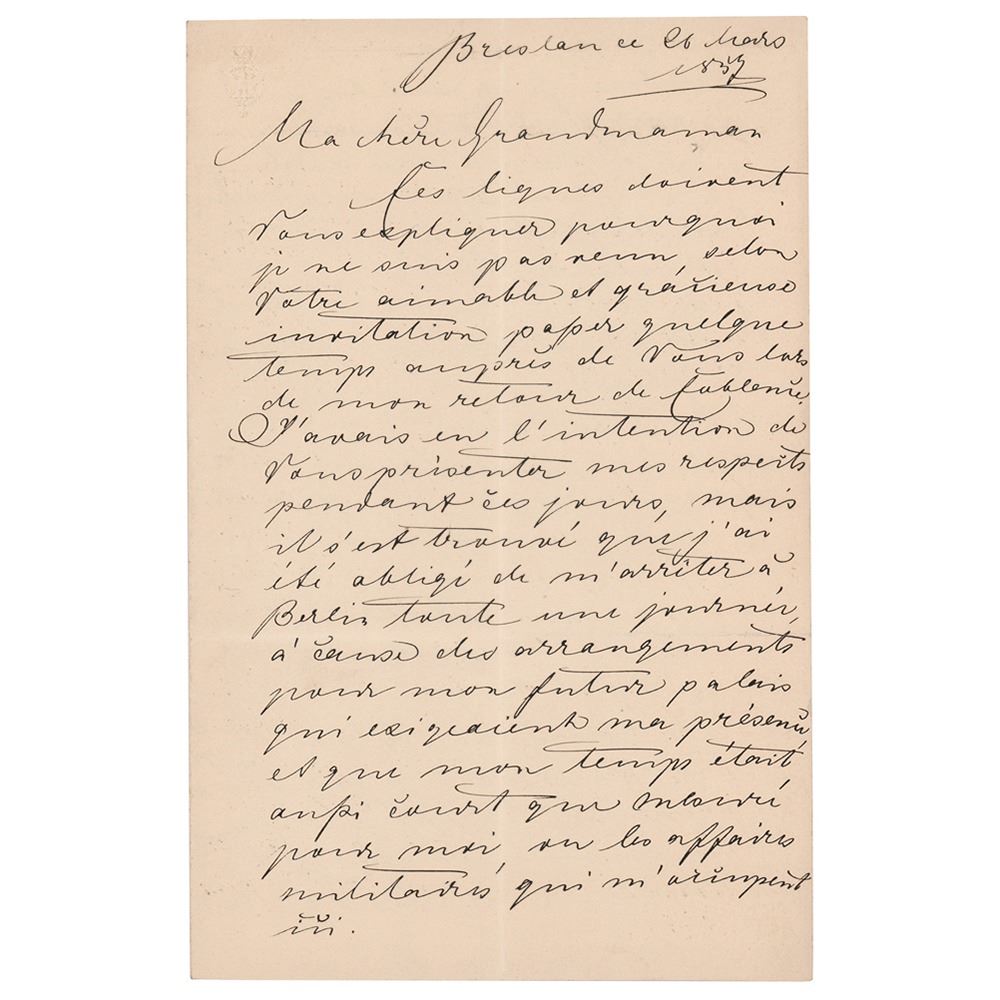 Breslau ce 26 Mars
1857
Ma chère Grandmaman
Ces lignes doivent
Vous expliquer pourquoi
je ne suis pas venu, selon
Votre aimable et gračieuse
invitation paſser quelque
temps auprès de Vous lors
de mon retour de Coblence.
J'avais eu l'intention de
Vous présenter mes respects
pendant ces jours, mais
il s'est trouvé que j'ai
été obligé de m'arrêter à
Berlin toute une journée,
à cause des arrangements
pour mon futur palais
qui exigeaient ma présence,
et que mon temps était
auſsi court que mesuré
pour moi, vu les affaires
militaires qui m'occupent
ici.